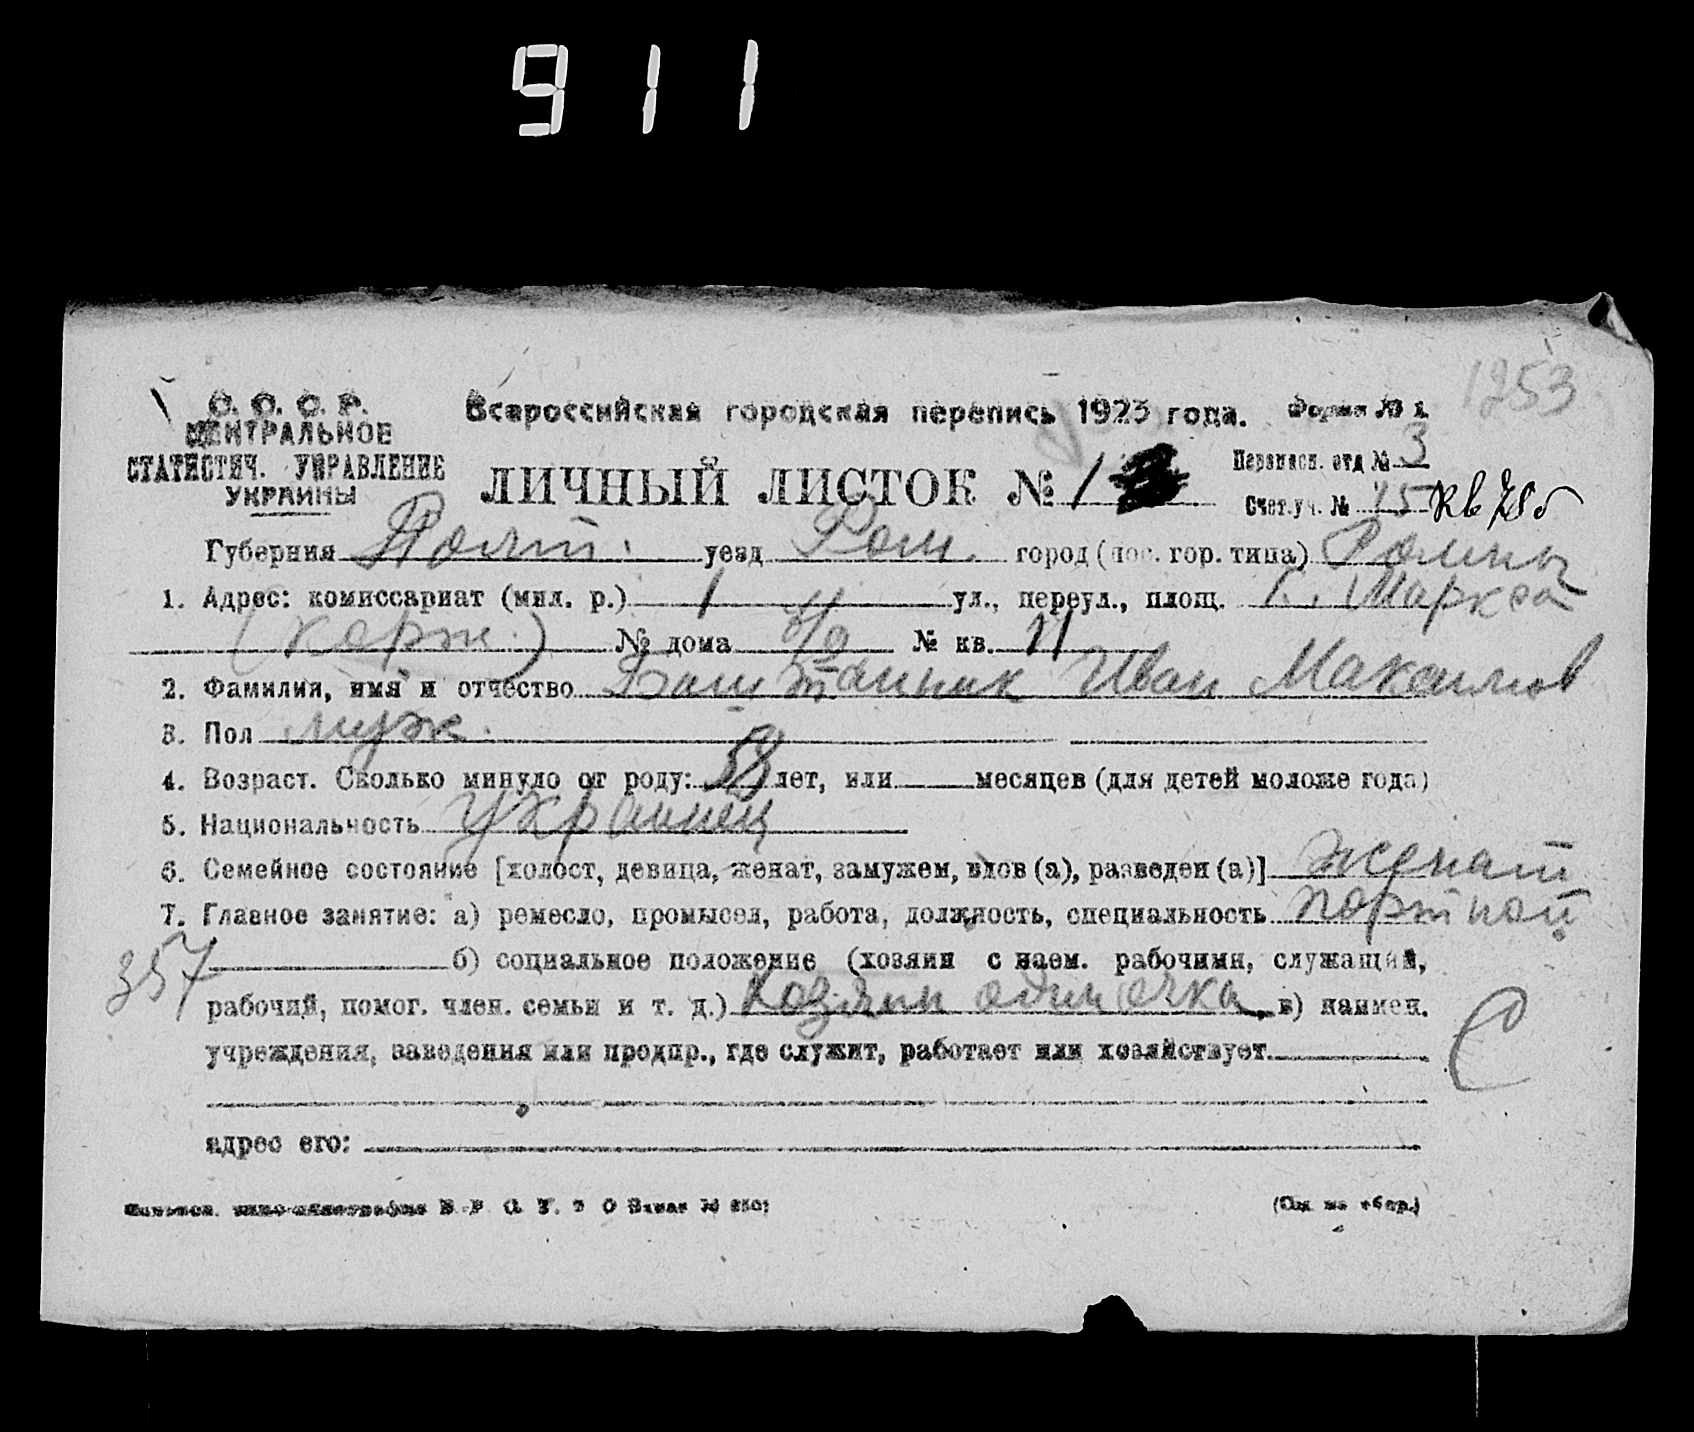 911
1253
С. С. С. Р.
ЦЕНТРАЛЬНОЕ
СТАТИСТИЧ. УПРАВЛЕНИЕ
УКРАИНЫ
Всероссийская городская перепись 1923 года.
Форма № 1.
ЛИЧНЫЙ ЛИСТОК № 1
Переписн. отд № 3
Счет.уч. № 15 Кв
Губерния Полт. уезд Ром. город (пос. гор. типа) Ромны
1. Адрес: комиссариат (мил. р.) 1 ул., переул., площ. К. Маркса
(Корж.) № дома № кв. 11
2. Фамилия, имя и отчество Баштанник Иван Максимов
3. Пол муж.
4. Возраст. Сколько минуло от роду: 58 лет, или месяцев (для детей моложе года)
5. Национальность Украинец
6. Семейное состояние [холост, девица, женат, замужем, вдов (а), разведен (а)] женат
7. Главное занятие: а) ремесло, промысел, работа, должность, специальность портной
357 б) социальное положение (хозяин с наем. рабочими, служащий,
рабочий, помог. член. семьи и т. д.) Хозяин одиночка, в) наимен.
учреждения, заведения или предпр., где служит, работает или хозяйствует
адрес его:
(См. на обор.)